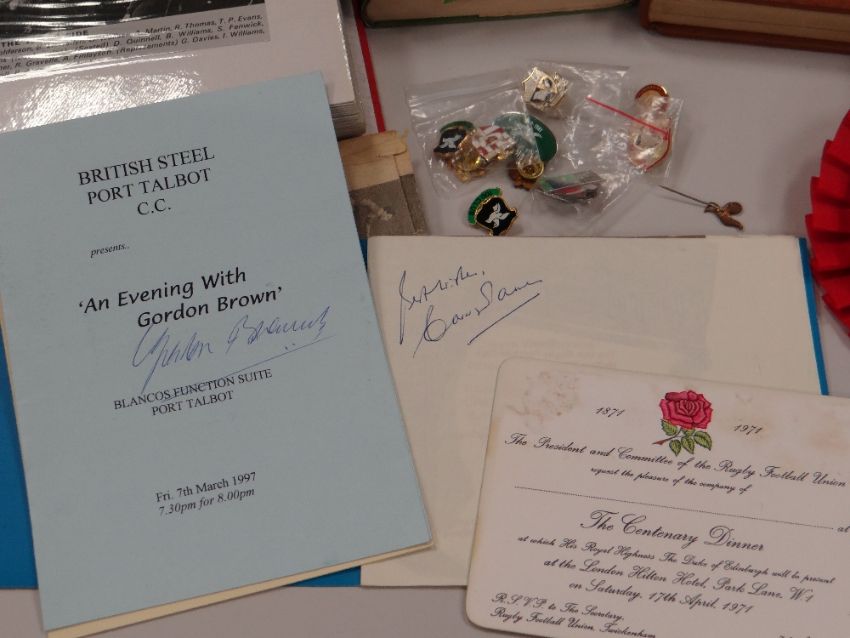 Martin, R. Thomas, T. P. Evans,
D. Quinnell, B. Williams, S. Fenwick,
R. Gravelle, A. Finlayson. (Replacements) G. Davies, I. Williams,
BRITISH STEEL
PORT TALBOT
C.C.
presents..
'An Evening With
Gordon Brown'
Gordon Brown
BLANCOS FUNCTION SUITE
PORT TALBOT
Fri. 7th March 1997
7.30pm for 8.00pm
Best wishes,
1871 1971
The President and Committee of the Rugby Football Union
request the pleasure of the company of
at
The Centenary Dinner
at which His Royal Highness The Duke of Edinburgh will be present
at the London Hilton Hotel, Park Lane, W1
on Saturday, 17th April, 1971
R.S.V.P. to The Secretary,
Rugby Football Union, Twickenham